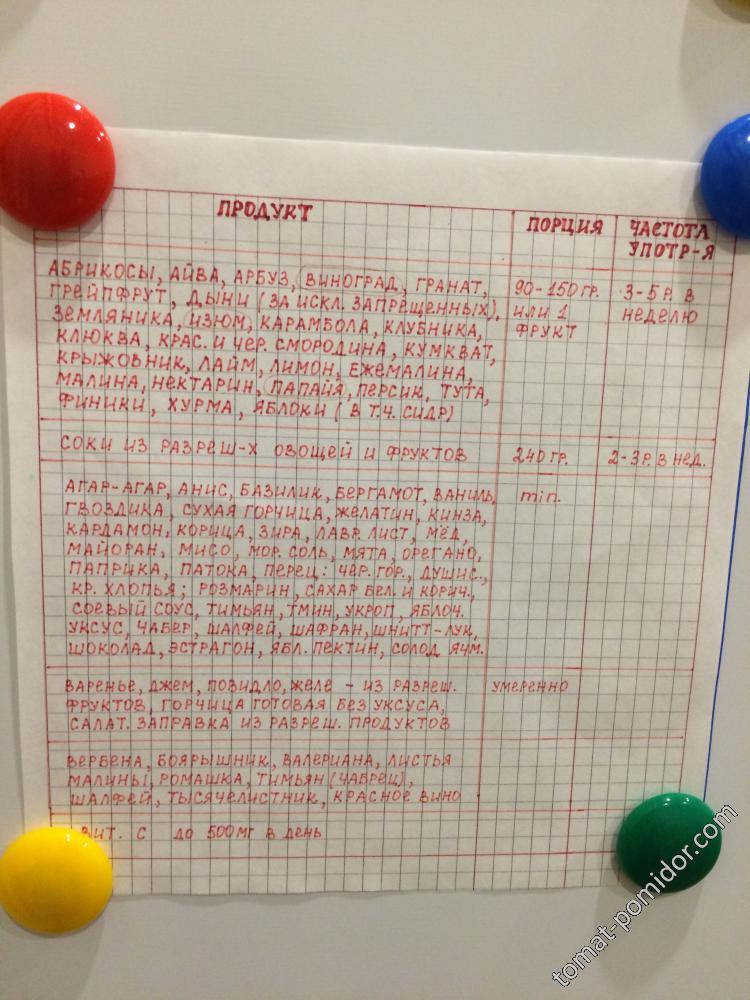 ПРОДУКТ
ПОРЦИЯ
ЧАСТОТА
УПОТР-Я
АБРИКОСЫ, АЙВА, АРБУЗ, ВИНОГРАД, ГРАНАТ,
ГРЕЙПФРУТ, ДЫНИ (ЗА ИСКЛ. ЗАПРЕЩЕННЫХ),
ЗЕМЛЯНИКА, ИЗЮМ, КАРАМБОЛА, КЛУБНИКА,
КЛЮКВА, КРАС. И ЧЕР. СМОРОДИНА, КУМКВАТ,
КРЫЖОВНИК, ЛАЙМ, ЛИМОН, ЕЖЕМАЛИНА,
МАЛИНА, НЕКТАРИН, ПАПАЙЯ, ПЕРСИК, ТУТА,
ФИНИКИ, ХУРМА, ЯБЛОКИ (В Т.Ч. СИДР)
90-150 ГР.
ИЛИ 1
ФРУКТ
3-5 Р. В
НЕДЕЛЮ
СОКИ ИЗ РАЗРЕШ-Х ОВОЩЕЙ И ФРУКТОВ
240 ГР.
2-3 Р. В НЕД.
АГАР-АГАР, АНИС, БАЗИЛИК, БЕРГАМОТ, ВАНИЛЬ,
ГВОЗДИКА, СУХАЯ ГОРЧИЦА, ЖЕЛАТИН, КИНЗА,
КАРДАМОН, КОРИЦА, ЗИРА, ЛАВР. ЛИСТ, МЁД,
МАЙОРАН, МИСО, МОР. СОЛЬ, МЯТА, ОРЕГАНО,
ПАПРИКА, ПАТОКА, ПЕРЕЦ: ЧЕР. ГОР., ДУШИС.,
КР. ХЛОПЬЯ; РОЗМАРИН, САХАР БЕЛ. И КОРИЧ.,
СОЕВЫЙ СОУС, ТИМЬЯН, ТМИН, УКРОП, ЯБЛОЧ.
УКСУС, ЧАБЕР, ШАЛФЕЙ, ШАФРАН, ШНИТТ-ЛУК,
ШОКОЛАД, ЭСТРАГОН, ЯБЛ. ПЕКТИН, СОЛОД ЯЧМ.
min.
ВАРЕНЬЕ, ДЖЕМ, ПОВИДЛО, ЖЕЛЕ - ИЗ РАЗРЕШ.
ФРУКТОВ, ГОРЧИЦА ГОТОВАЯ БЕЗ УКСУСА,
САЛАТ. ЗАПРАВКА ИЗ РАЗРЕШ. ПРОДУКТОВ
УМЕРЕННО
ВЕРБЕНА, БОЯРЫШНИК, ВАЛЕРИАНА, ЛИСТЬЯ
МАЛИНЫ, РОМАШКА, ТИМЬЯН (ЧАБРЕЦ),
ШАЛФЕЙ, ТЫСЯЧЕЛИСТНИК, КРАСНОЕ ВИНО
ВИТ. С ДО 500 МГ В ДЕНЬ
tomat-pomidor.com